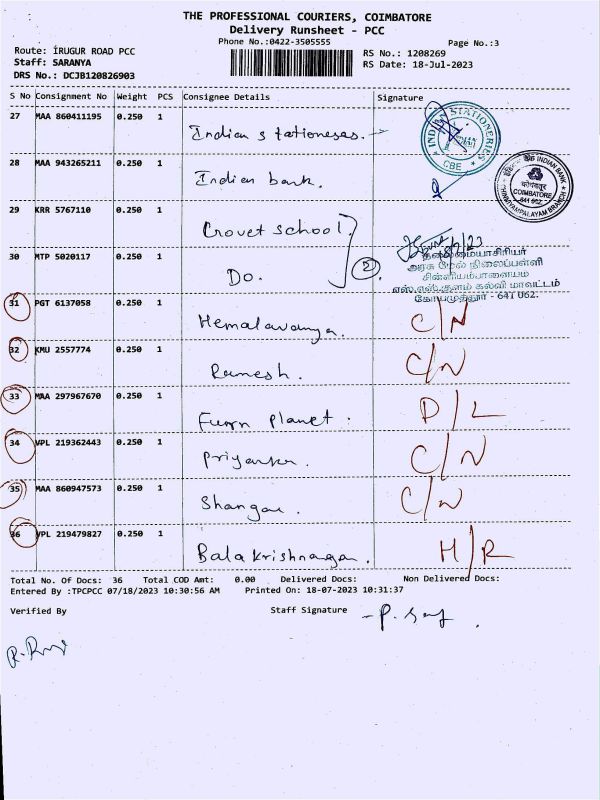 THE PROFESSIONAL COURIERS, COIMBATORE
Delivery Runsheet - PCC
Phone No.:0422-3505555
Page No.:3
Route: IRUGUR ROAD PCC
RS No.: 1208269
Staff: SARANYA
RS Date: 18-Jul-2023
DRS No.: DCJB120826903
S No Consignment No Weight PCS Consignee Details Signature
27 MAA 860411195 0.250 1 Indian stationeses.
INDIAN STATIONERIES
CBE
28 MAA 943265211 0.250 1 Indian bank.
INDIAN BANK
COIMBATORE
641 062
CHINNIYAMPALAYAM BRANCH
29 KRR 5767110 0.250 1 Crovet school.
30 MTP 5020117 0.250 1 Do. 2
தலைமையாசிரியர்
அரசு மேல் நிலைப்பள்ளி
சின்னியம்பாளையம்
எஸ்.எஸ்.குளம் கல்வி மாவட்டம்
கோயமுத்தூர் - 641 062.
31 PGT 6137058 0.250 1 Hemalavanya. C/N
32 KMU 2557774 0.250 1 Ramesh. C/N
33 MAA 297967670 0.250 1 Furn planet. D/L
34 VPL 219362443 0.250 1 Priyanka. C/N
35 MAA 860947573 0.250 1 Shangar. C/N
36 VPL 219479827 0.250 1 Balakrishnagan. H/R
Total No. Of Docs: 36 Total COD Amt: 0.00 Delivered Docs: Non Delivered Docs:
Entered By :TPCPCC 07/18/2023 10:30:56 AM Printed On: 18-07-2023 10:31:37
Verified By Staff Signature